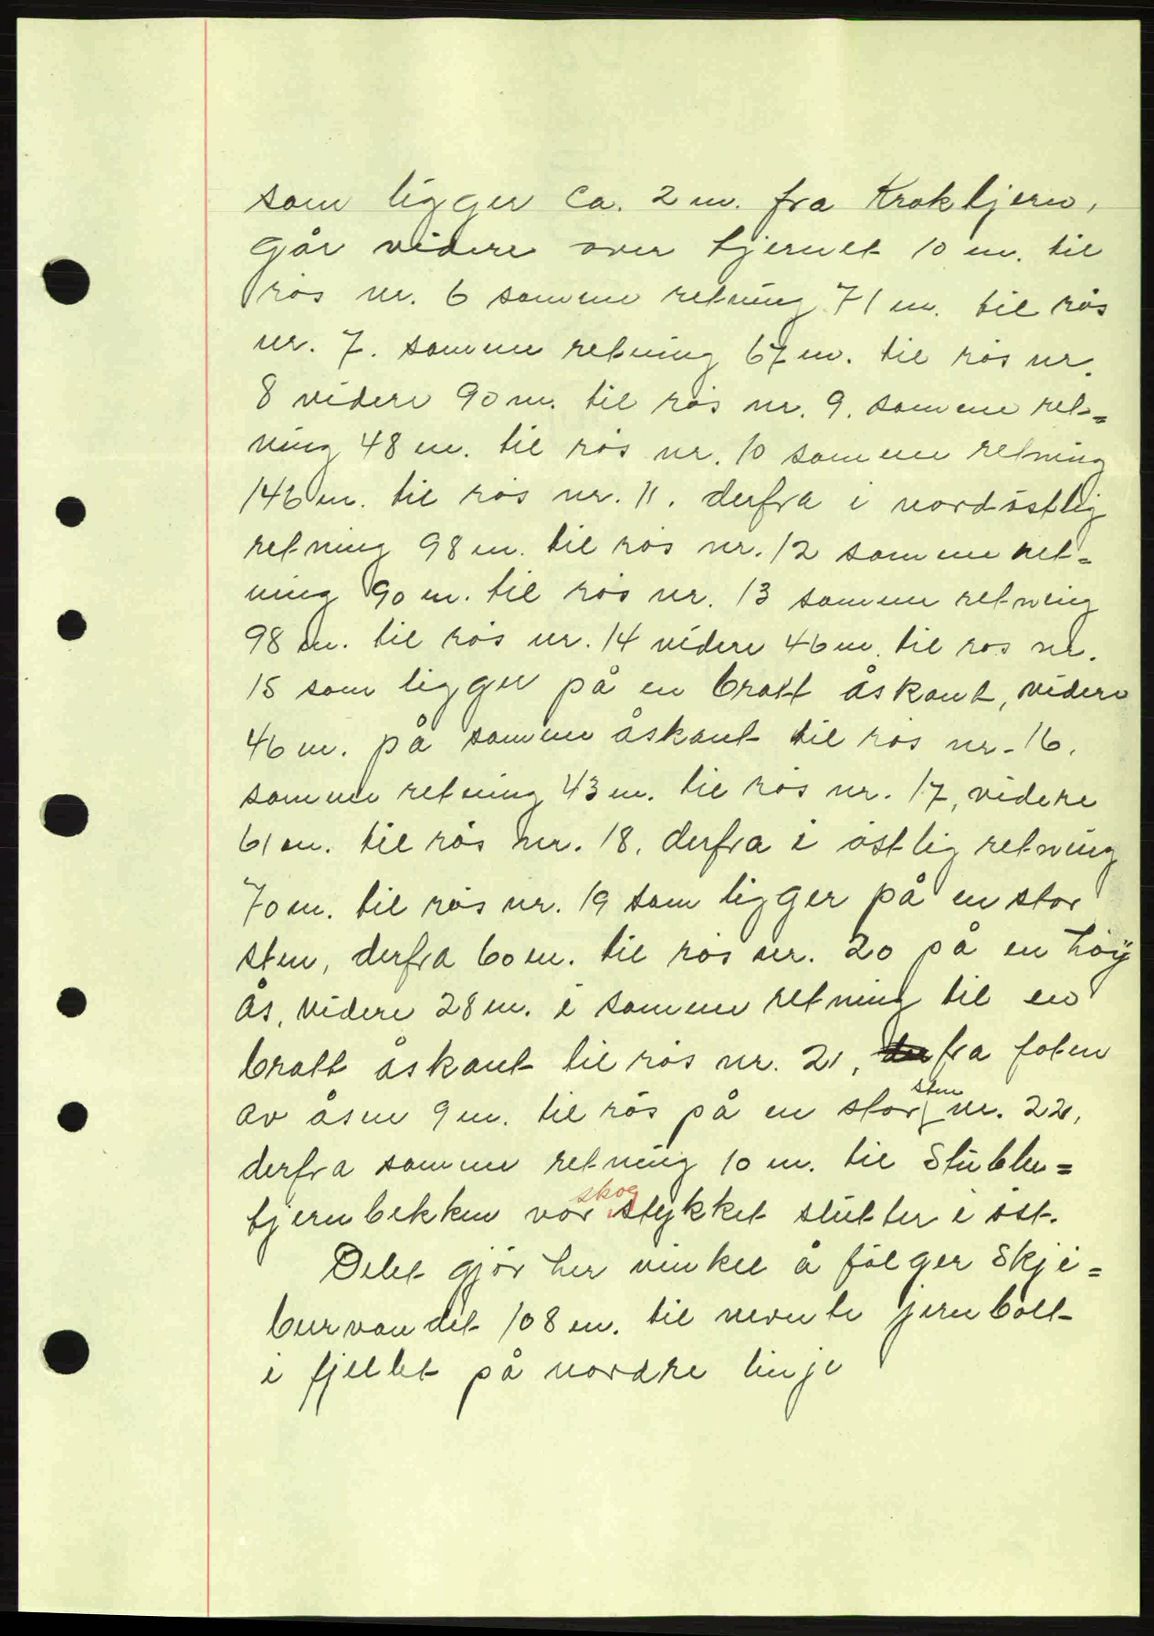 som ligger ca. 2 m. fra Kroktjern,
går videre over tjernet 10 m. til
rös nr. 6 samme retning 71 m. til rös
nr. 7. samme retning 67 m. til rös nr.
8 videre 90 m. til rös nr. 9. samme ret=
ning 48 m. til rös nr. 10 samme retning
146 m. til rös nr. 11. derfra i nordöstlig
retning 98 m. til rös nr. 12 samme ret=
ning 90 m. til rös nr. 13 samme retning
98 m. til rös nr. 14 videre 46 m. til rös nr.
15 som ligger på en bratt åskant, videre
46 m. på samme åskant til rös nr. 16.
samme retning 43 m. til rös nr. 17, videre
61 m. til rös nr. 18. derfra i östlig retning
70 m. til rös nr. 19 som ligger på en stor
sten, derfra 60 m. til rös nr. 20 på en höy
ås, videre 28 m. i samme retning til en
bratt åskant til rös nr. 21, fra foten
av åsen 9 m. til rös på en stor sten nr. 22,
derfra samme retning 10 m. til Stubber=
tjernbekken vor skogstykket slutter i öst.
Delet gjör her vinkel å fölger Skje=
burvandet 108 m. til nevnte jernbolt
i fjellet på nordre linje